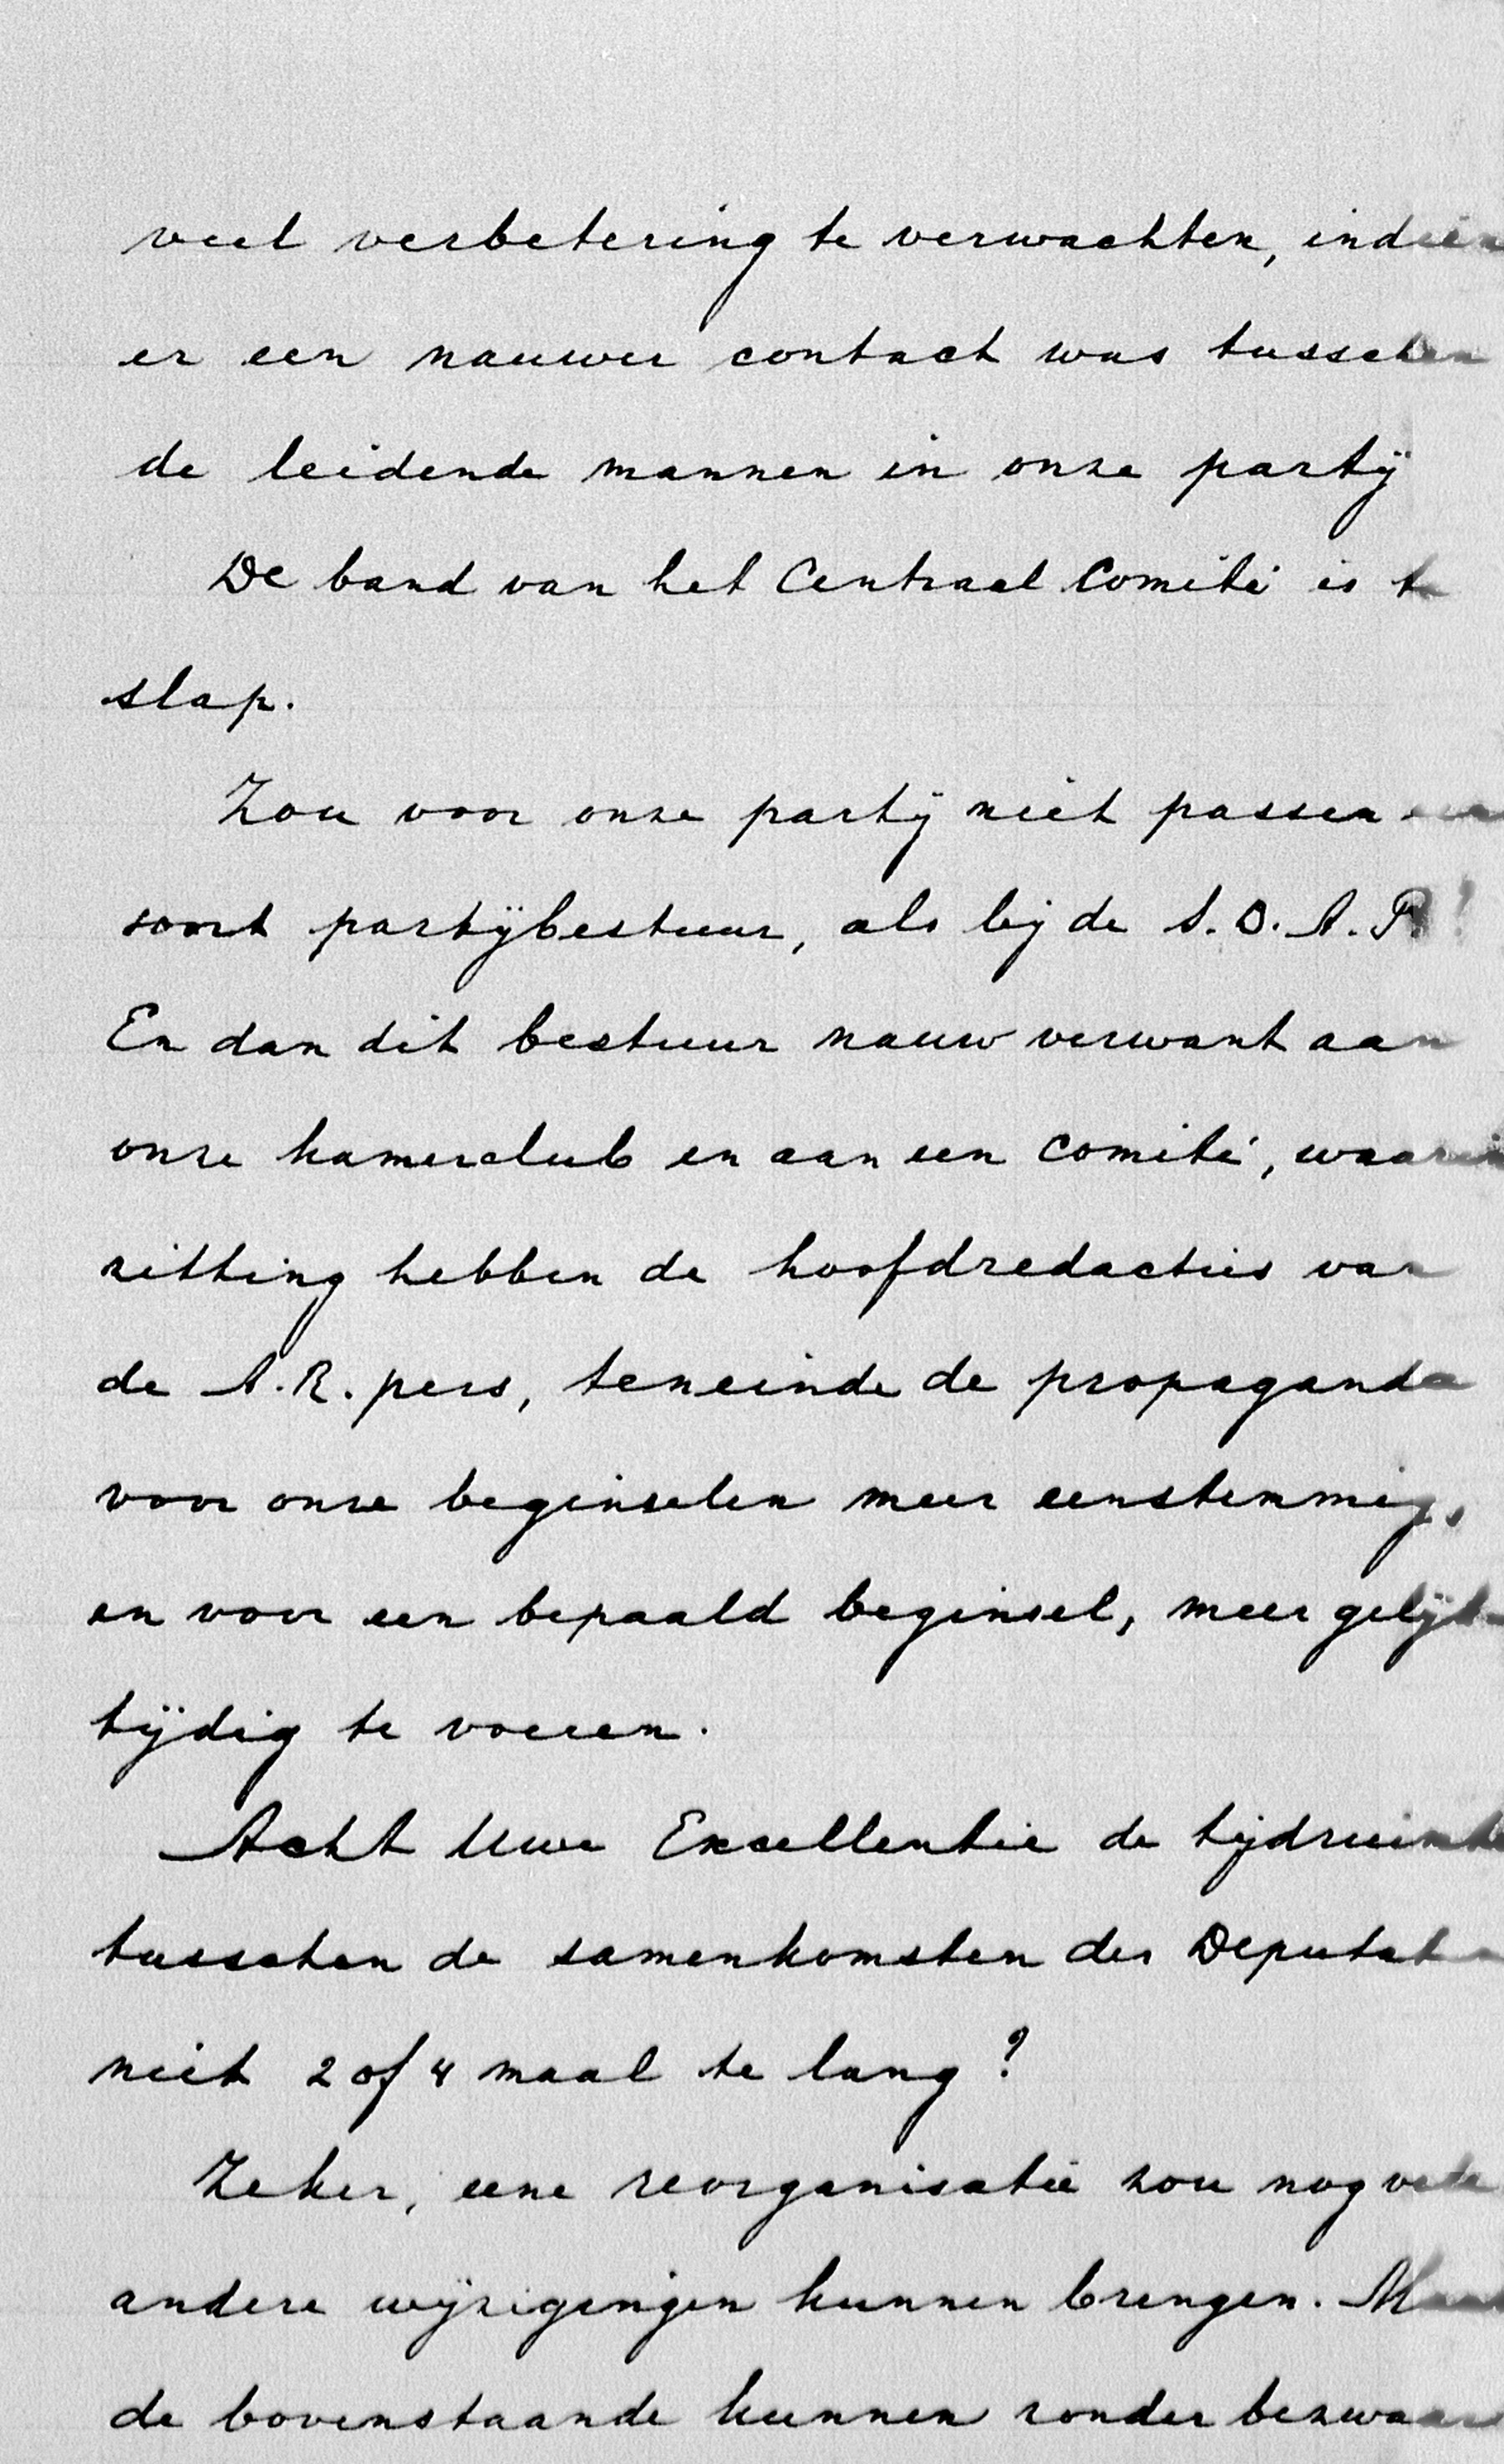 veel verbetering te verwachten, indien
er een nauwer contact was tusschen
de leidende mannen in onze partij
De band van het Centraal Comité is te
slap.
Zou voor onze partij niet passen een
soort partijbestuur, als bij de S.D.A.P.?
En dan dit bestuur nauw verwant aan
onze kamerclub en aan een comité, waarin
zitting hebben de hoofdredacties van
de A.R. pers, teneinde de propaganda
voor onze beginselen meer eenstemmig,
en voor een bepaald beginsel, meer gelijk-
tijdig te voeren.
Acht Uwe Excellentie de tijdruimte
tusschen de samenkomsten der Deputaten
niet 2 of 4 maal te lang?
Zeker, eene reorganisatie zou nog vele
andere wijzigingen kunnen brengen. Maar
de bovenstaande kunnen zonder bezwaar